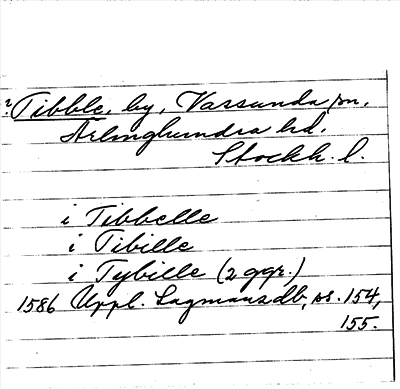 Tibble, by, Vassunda sn,
Ärlinghundra hd.
Stockh. l.
i Tibbelle
i Tibille
i Tybille (2 ggr.)
1586 Uppl. Lagmansdb, ss. 154,
155.